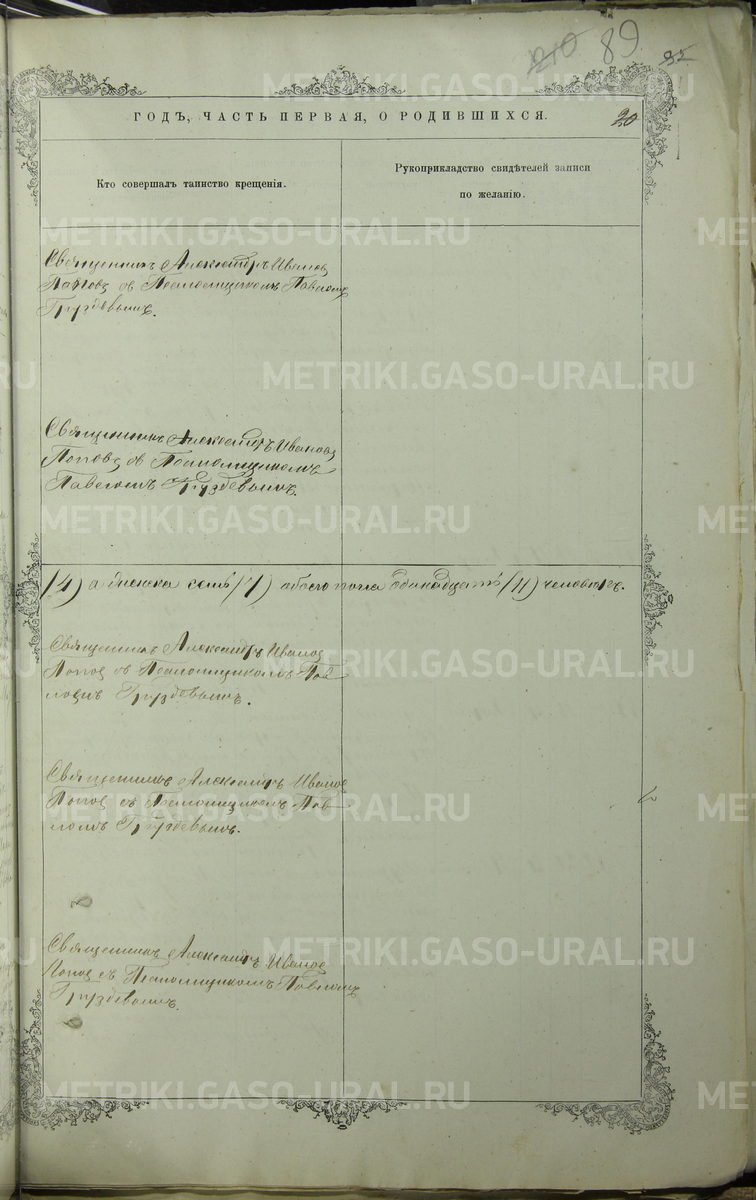 210 89 85
ГОДЪ, ЧАСТЬ ПЕРВАЯ, О РОДИВШИХСЯ. 20
Кто совершалъ таинство крещенія.
Рукоприкладство свидѣтелей записи
по желанію.
Священникъ Александръ Иванов
Попов съ Псаломщикомъ Павломъ
Груздевымъ.
Священникъ Александръ Иванов
Попов съ Псаломщикомъ
Павломъ Груздевымъ.
(4) а женска семь (7) обоего пола одинадцать (11) человекъ.
Священник Александръ Иванов
Попов съ Псаломщикомъ Пав-
ломъ Груздевымъ.
Священникъ Александръ Иванов
Попов съ Псаломщикомъ Пав-
ломъ Груздевымъ.
Священникъ Александръ Иванов
Попов съ Псаломщикомъ Павломъ
Груздевымъ.
METRIKI.GASO-URAL.RU